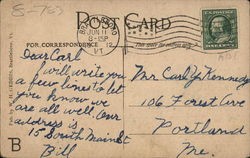 8-763
POST CARD
FOR CORRESPONDENCE
JUN 11
8-15P
12
VT.
Dear Carl
I will write you
a few lines to let
you know we
are all well. Our
address is
15 South Main St
Bill
Mr. Carl J. Kennedy
106 Forest Ave
Portland
Me.
B